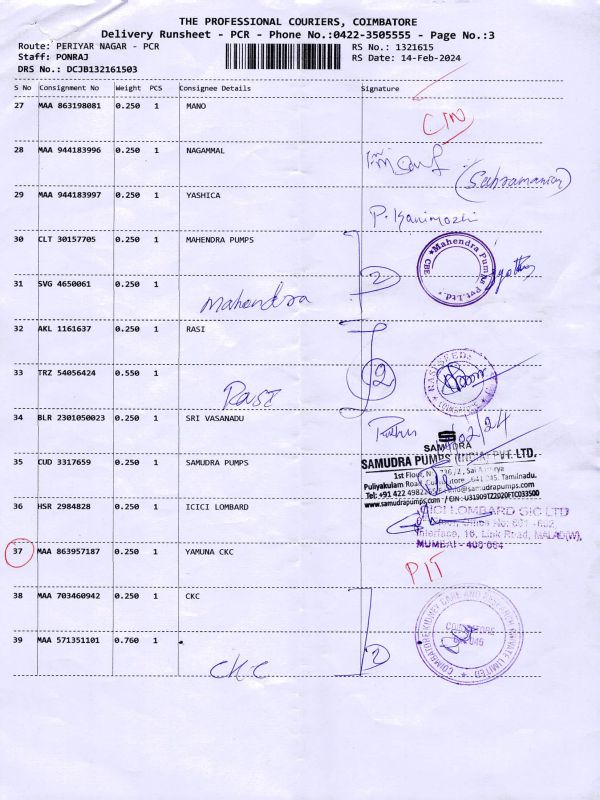 THE PROFESSIONAL COURIERS, COIMBATORE
Delivery Runsheet - PCR - Phone No.:0422-3505555 - Page No.:3
Route: PERIYAR NAGAR - PCR RS No.: 1321615
Staff: PONRAJ RS Date: 14-Feb-2024
DRS No.: DCJB132161503
S No Consignment No Weight PCS Consignee Details Signature
27 MAA 863198081 0.250 1 MANO
28 MAA 944183996 0.250 1 NAGAMMAL
(Subramanian)
29 MAA 944183997 0.250 1 YASHICA P. Kanimozhi
30 CLT 30157705 0.250 1 MAHENDRA PUMPS
*Mahendra Pumps Pvt.Ltd.* CBE
31 SVG 4650061 0.250 1 2
Mahendra
32 AKL 1161637 0.250 1 RASI
33 TRZ 54056424 0.550 1 2
RASI SEEDS
Rasi
34 BLR 2301050023 0.250 1 SRI VASANADU
02/24
SAMUDRA
35 CUD 3317659 0.250 1 SAMUDRA PUMPS SAMUDRA PUMPS (INDIA) PVT. LTD.
1st Floor,
Puliyakulam Road, 641 045. Tamilnadu.
Tel: +91 422 info@samudrapumps.com
www.samudrapumps.com / CIN:U31909TZ2020FTC033500
36 HSR 2984828 0.250 1 ICICI LOMBARD ICICI LOMBARD GIC LTD
Interface, 16, Link Road, MALAD(W),
MUMBAI - 400 064
37 MAA 863957187 0.250 1 YAMUNA CKC PIT
38 MAA 703460942 0.250 1 CKC
COIMBATORE KIDNEY CARE AND RESEARCH PRIVATE LIMITED
COIMBATORE
39 MAA 571351101 0.760 1 2
CKC